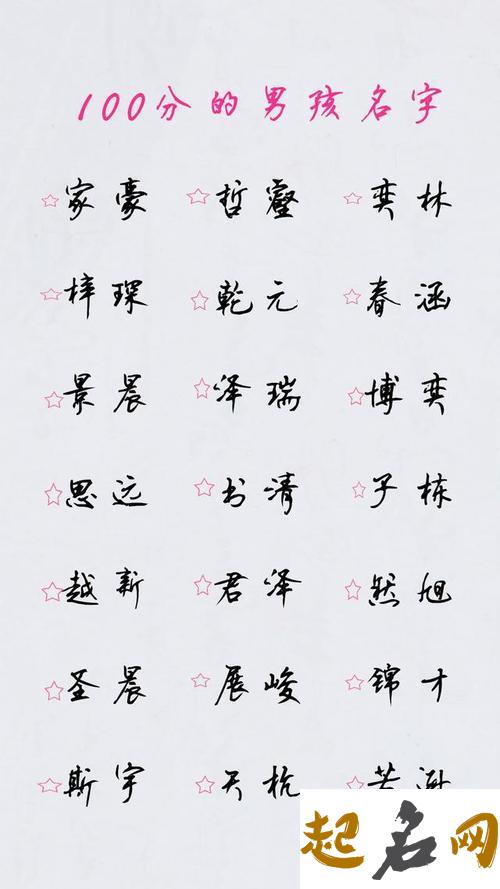 100分的男孩名字
☆家豪 ☆哲壑 ☆奕林
☆梓琛 ☆乾元 ☆春涵
☆景晨 ☆泽瑞 ☆博奕
☆思远 ☆书清 ☆子栋
☆越新 ☆君泽 ☆然旭
☆圣晨 ☆展峻 ☆锦才
☆斯宇 ☆天杭
起名网